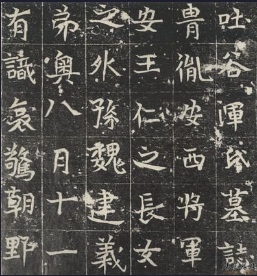 吐谷渾氏墓誌
胄胤安西將軍
安王仁之長女
之外孫魏建義
第粵八月十一
有識哀驚朝野